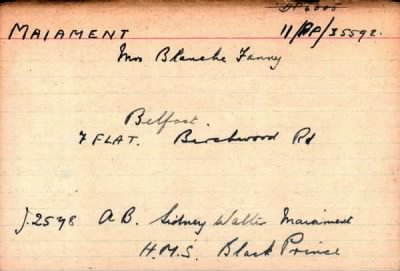 DP6005
MAIAMENT 11/DP/35592.
Mrs Blanche Fanny
Belfast.
7 FLAT. Birchwood Rd
J.2578 A.B. Sidney Walter Maiament
H.M.S. Black Prince